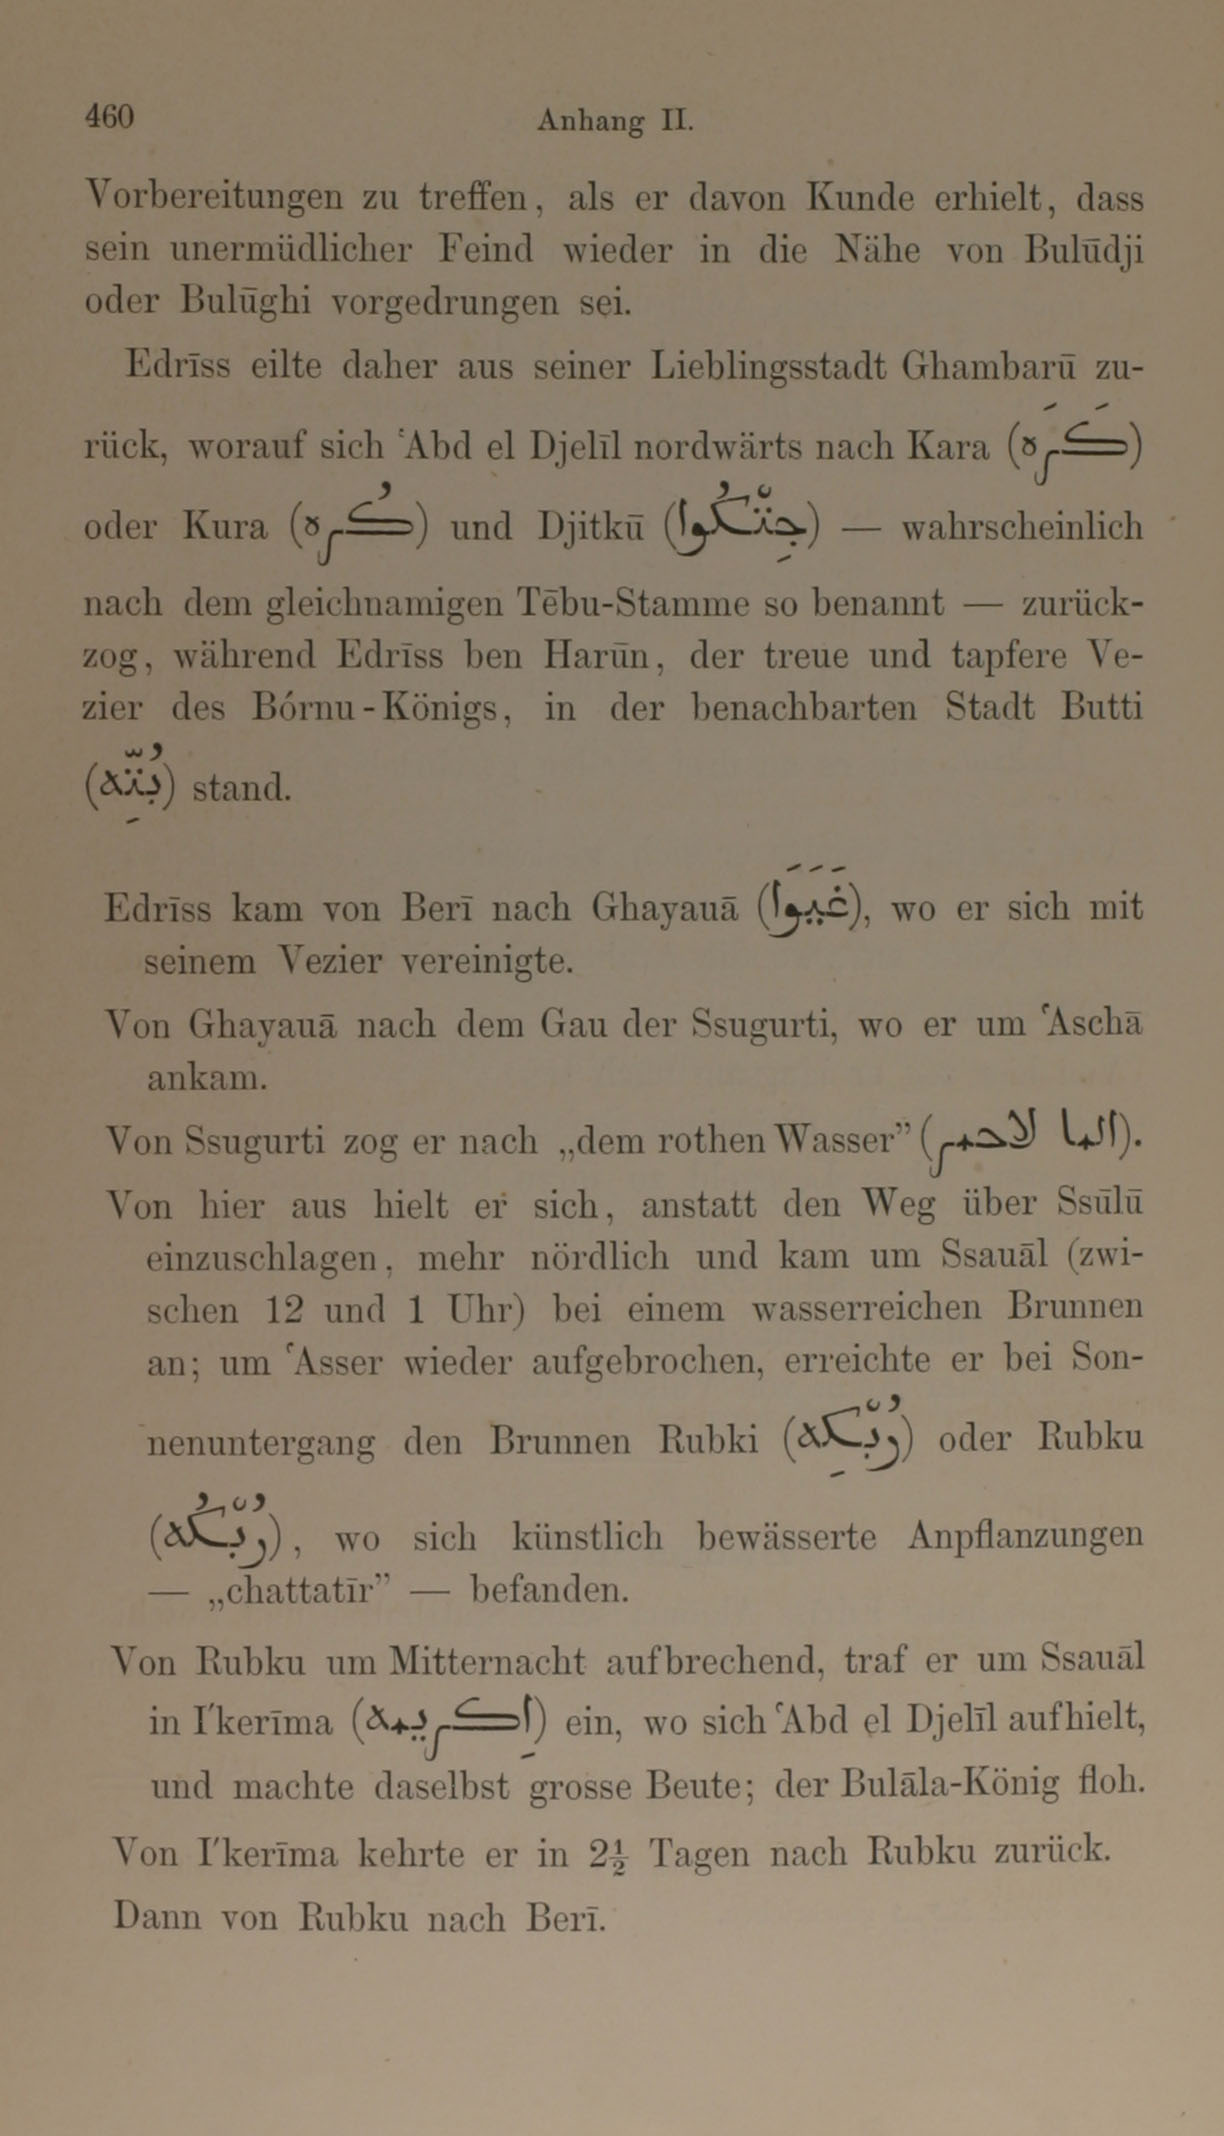 460 Anhang II.
Vorbereitungen zu treffen, als er davon Kunde erhielt, dass
sein unermüdlicher Feind wieder in die Nähe von Bulūdji
oder Bulūghi vorgedrungen sei.
Edrīss eilte daher aus seiner Lieblingsstadt Ghambarū zu-
rück, worauf sich ʿAbd el Djelīl nordwärts nach Kara (كَرَه)
oder Kura (كُره) und Djitkū (جِتْكُوا) — wahrscheinlich
nach dem gleichnamigen Tēbu-Stamme so benannt — zurück-
zog, während Edrīss ben Harūn, der treue und tapfere Ve-
zier des Bórnu-Königs, in der benachbarten Stadt Butti
(بُتِّه) stand.
Edrīss kam von Berī nach Ghayauā (غَيَوَا), wo er sich mit
seinem Vezier vereinigte.
Von Ghayauā nach dem Gau der Ssugurti, wo er um ʿAschā
ankam.
Von Ssugurti zog er nach „dem rothen Wasser” (الما لاحمر).
Von hier aus hielt er sich, anstatt den Weg über Ssūlū
einzuschlagen, mehr nördlich und kam um Ssauāl (zwi-
schen 12 und 1 Uhr) bei einem wasserreichen Brunnen
an; um ʿAsser wieder aufgebrochen, erreichte er bei Son-
nenuntergang den Brunnen Rubki (رُبْكِه) oder Rubku
(رُبْكُه), wo sich künstlich bewässerte Anpflanzungen
— „chattatīr” — befanden.
Von Rubku um Mitternacht aufbrechend, traf er um Ssauāl
in I'kerīma (اِكريمه) ein, wo sich ʿAbd el Djelīl aufhielt,
und machte daselbst grosse Beute; der Bulāla-König floh.
Von I'kerīma kehrte er in 2½ Tagen nach Rubku zurück.
Dann von Rubku nach Berī.